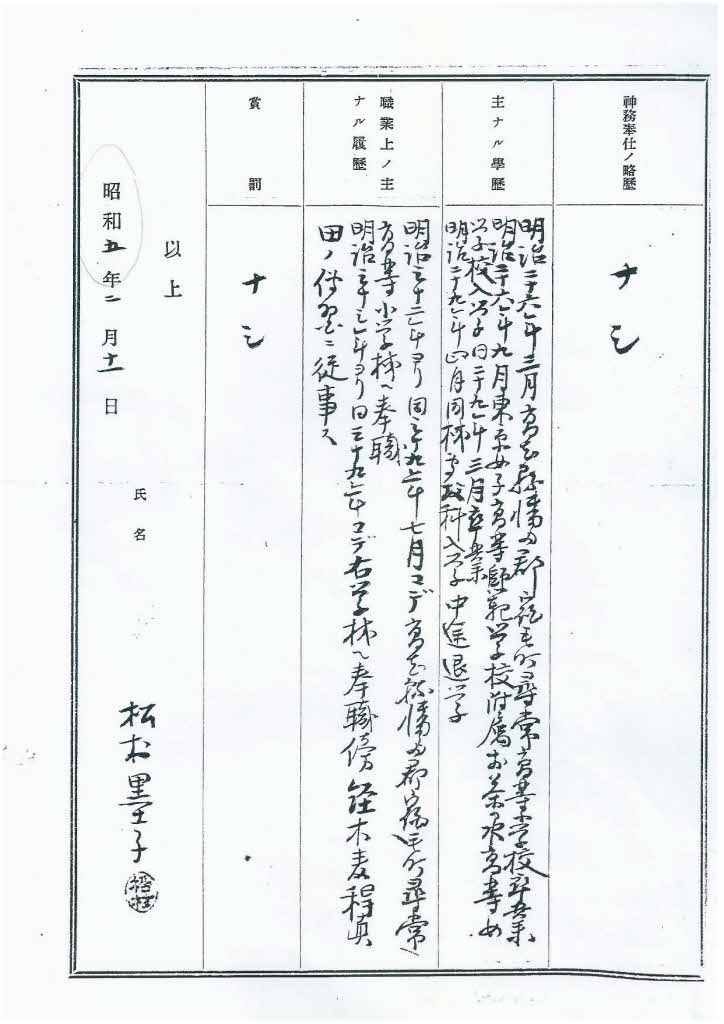 神務奉仕ノ略歴
ナシ
主ナル學歴
明治二十六年三月高知縣幡多郡宿毛町尋常高等小学校卒業
明治二十六年九月東京女子高等師範学校附属お茶の水高等女
学校入学同二十九年三月卒業
明治二十九年四月同校専攻科入学中途退学
職業上ノ主ナル履歴
明治三十二年ヨリ同三十九年七月マデ高知縣幡多郡宿毛町尋常
高等小学校ヘ奉職
明治三十三年ヨリ同三十九年マデ右学校ヘ奉職傍経木麦稈真
田ノ傳習ニ従事ス
賞罰
ナシ
以上
昭和五年二月十一日
氏名
松本里子